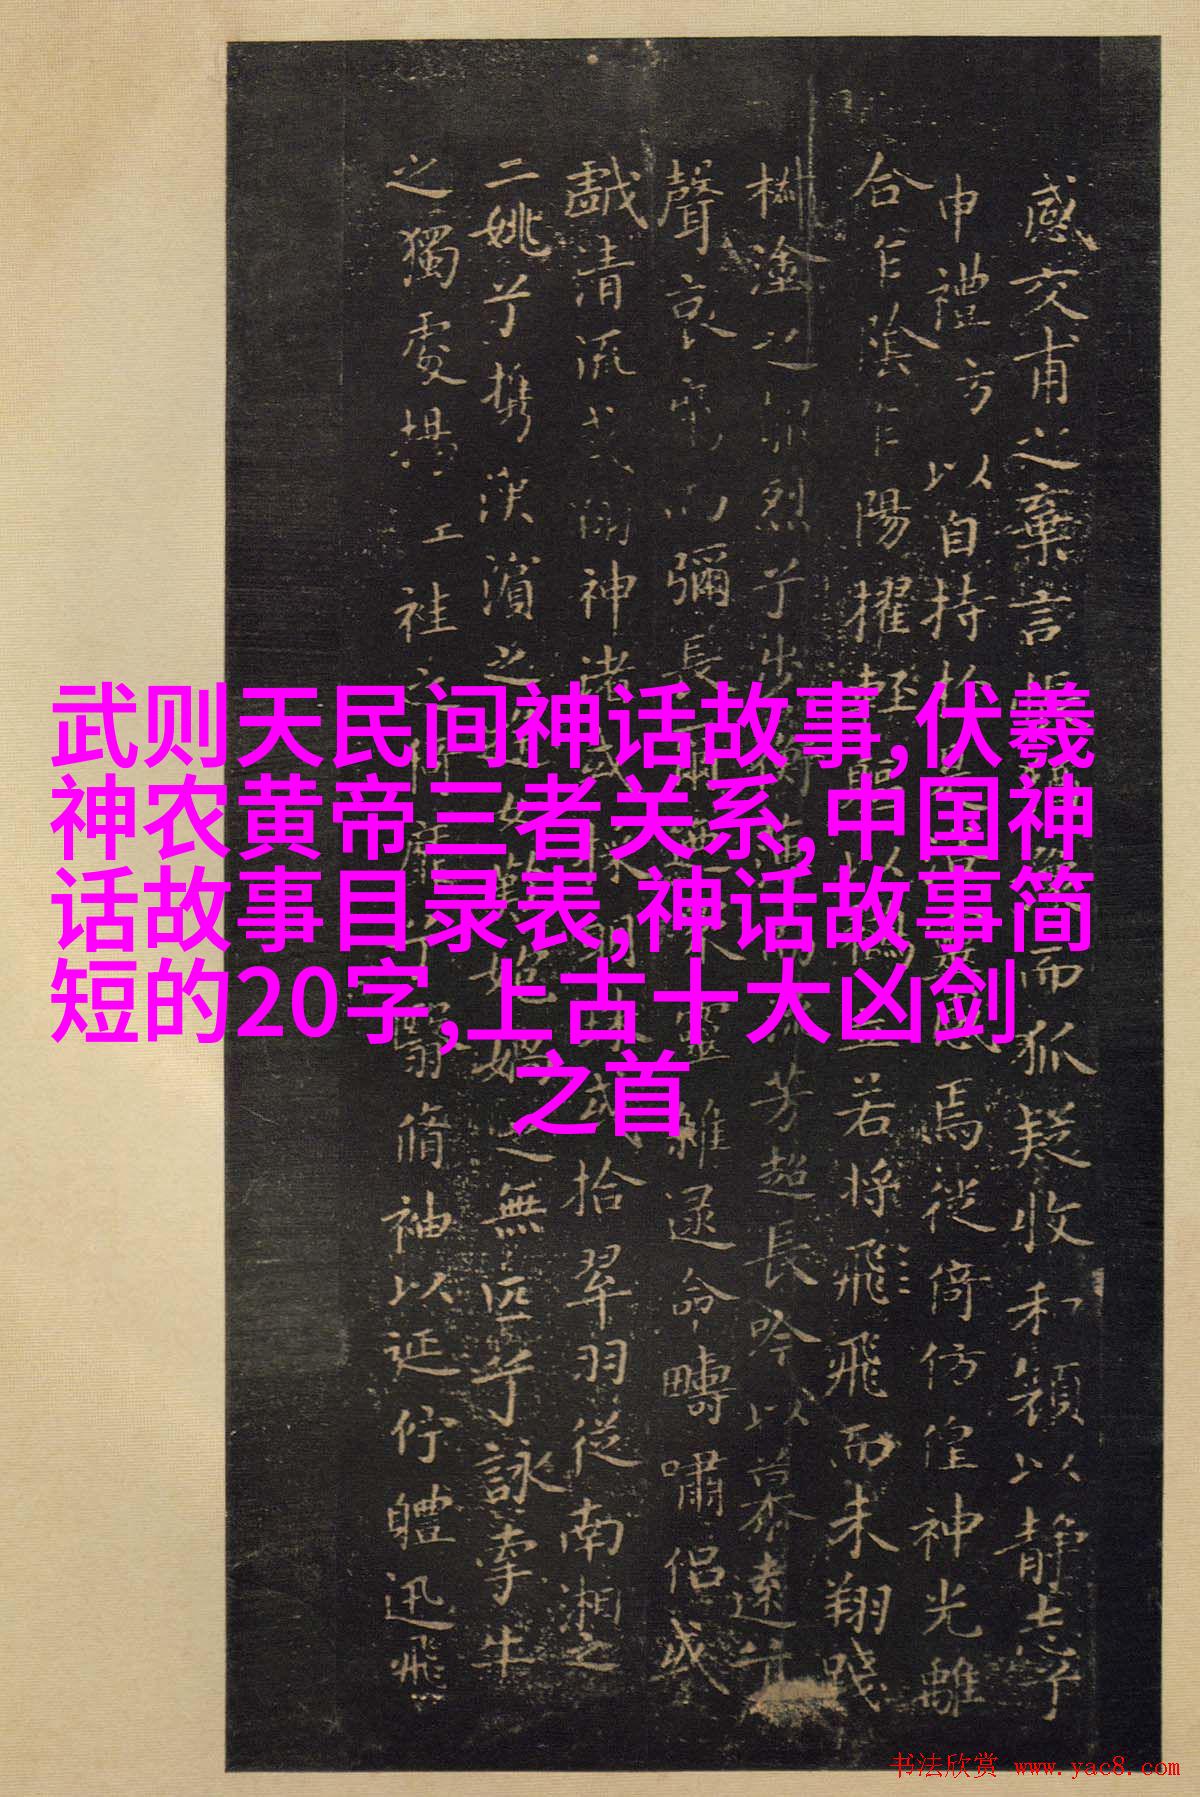 武则天民间神话故事,伏羲
神农黄帝三者关系,中国神
话故事目录表,神话故事简
短的20字,上古十大凶剑
之首
感交甫之棄言而狐疑收和顔以静志兮
申禮方以自持焉徙倚仿偟神光離
合乍陰乍陽擢輕軀以立若將飛飛而未翔踐
塗之烈兮步芳超長吟以慕遠兮
聲哀而彌長爾迺靈雜遝命疇嘯侣或
戲清流或神渚或明或拾翠羽從南湘之
二姚兮攜漢濱之女之無匹兮詠牽牛
之獨處揚袿之靡兮翳脩袖以延佇體迅飛
书法欣赏 www.yac8.com